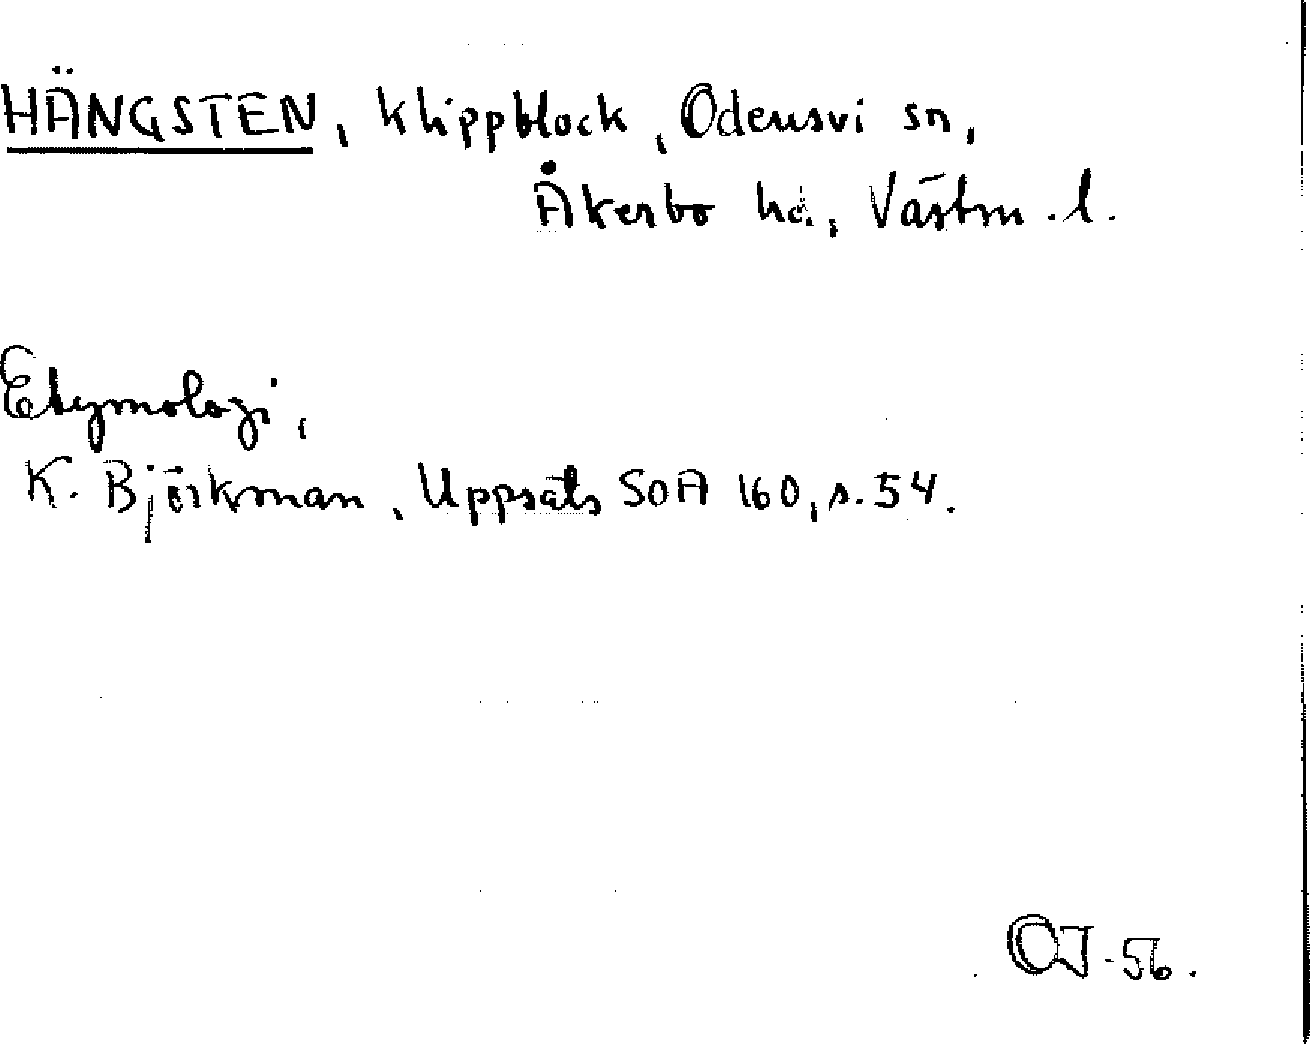 HÄNGSTEN, klippblock, Odensvi sn,
Åkerbo hd., Västm. l.
Etymologi,
K. Björkman, Uppsats SOA 160, s. 54.
OJ-56.